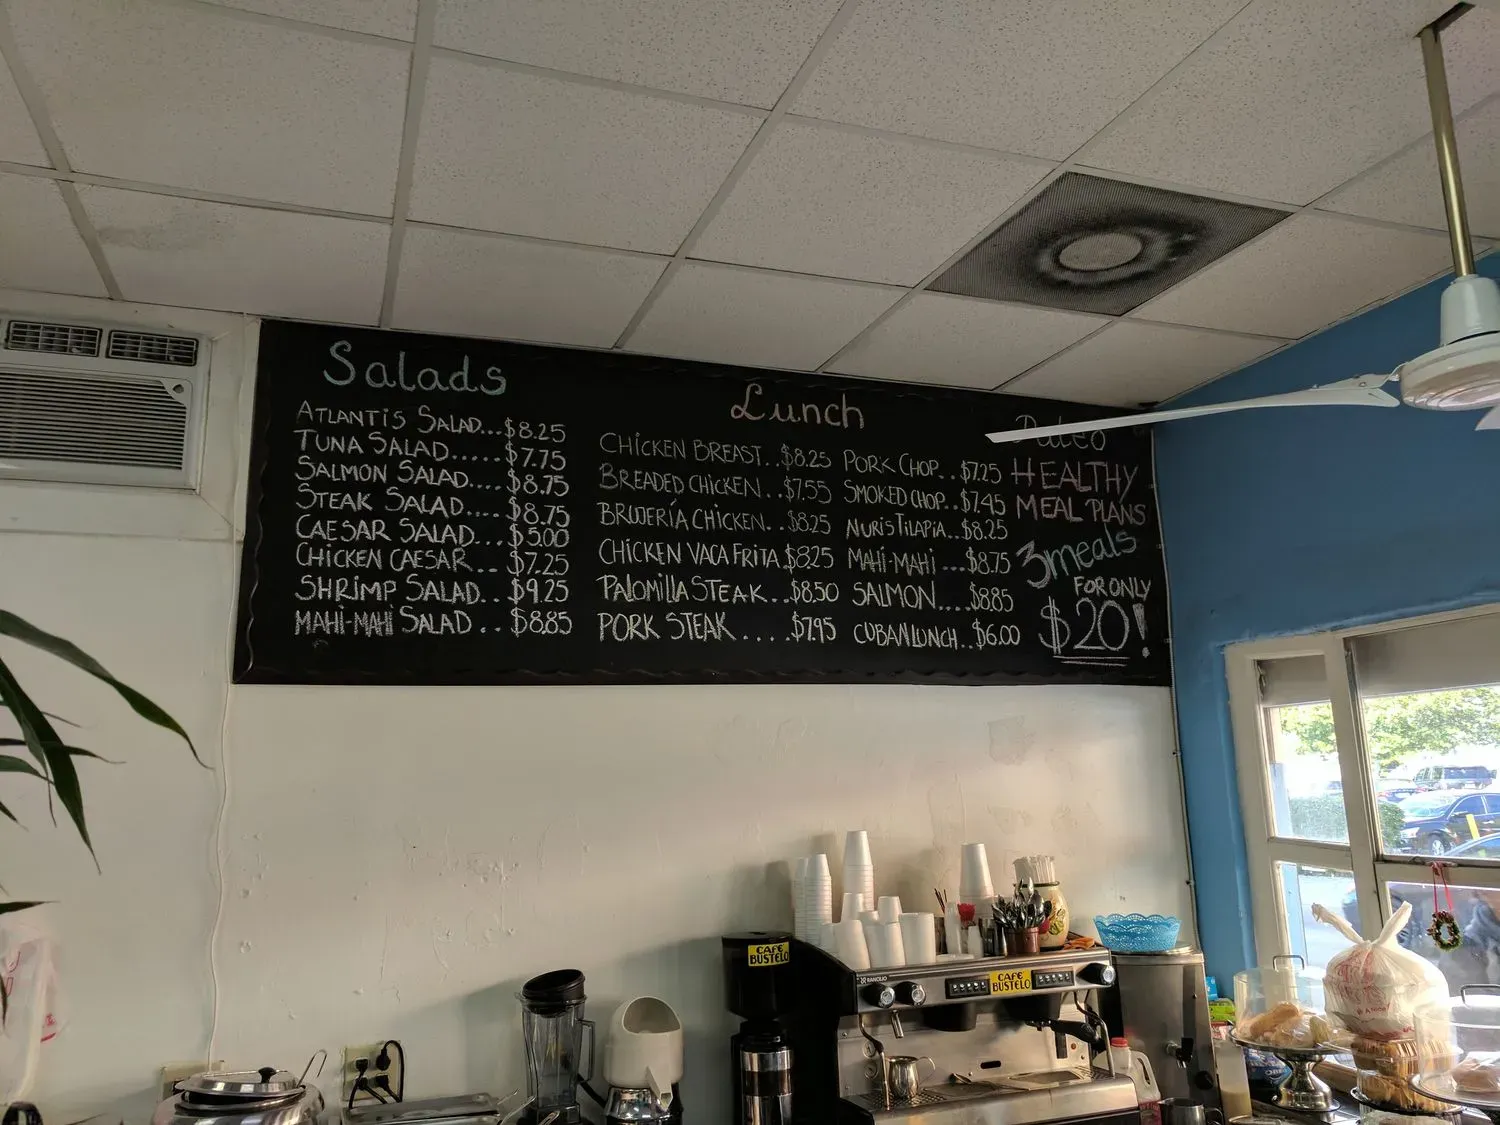 Salads
ATLANTIS SALAD...$8.25
TUNA SALAD.....$7.75
SALMON SALAD....$8.75
STEAK SALAD...$8.75
CAESAR SALAD...$5.00
CHICKEN CAESAR..$7.25
SHRIMP SALAD..$9.25
MAHI-MAHI SALAD..$8.85
Lunch
CHICKEN BREAST..$8.25
BREADED CHICKEN..$7.55
BRUJERÍA CHICKEN..$8.25
CHICKEN VACA FRITA $8.25
PALOMILLA STEAK..$8.50
PORK STEAK....$7.95
PORK CHOP..$7.25
SMOKED CHOP..$7.45
NURIS TILAPIA..$8.25
MAHI-MAHI...$8.75
SALMON....$8.85
CUBAN LUNCH..$6.00
HEALTHY
MEAL PLANS
3 meals
FOR ONLY
$20!
CAFE
BUSTELO
RANCILIO
CAFE
BUSTELO